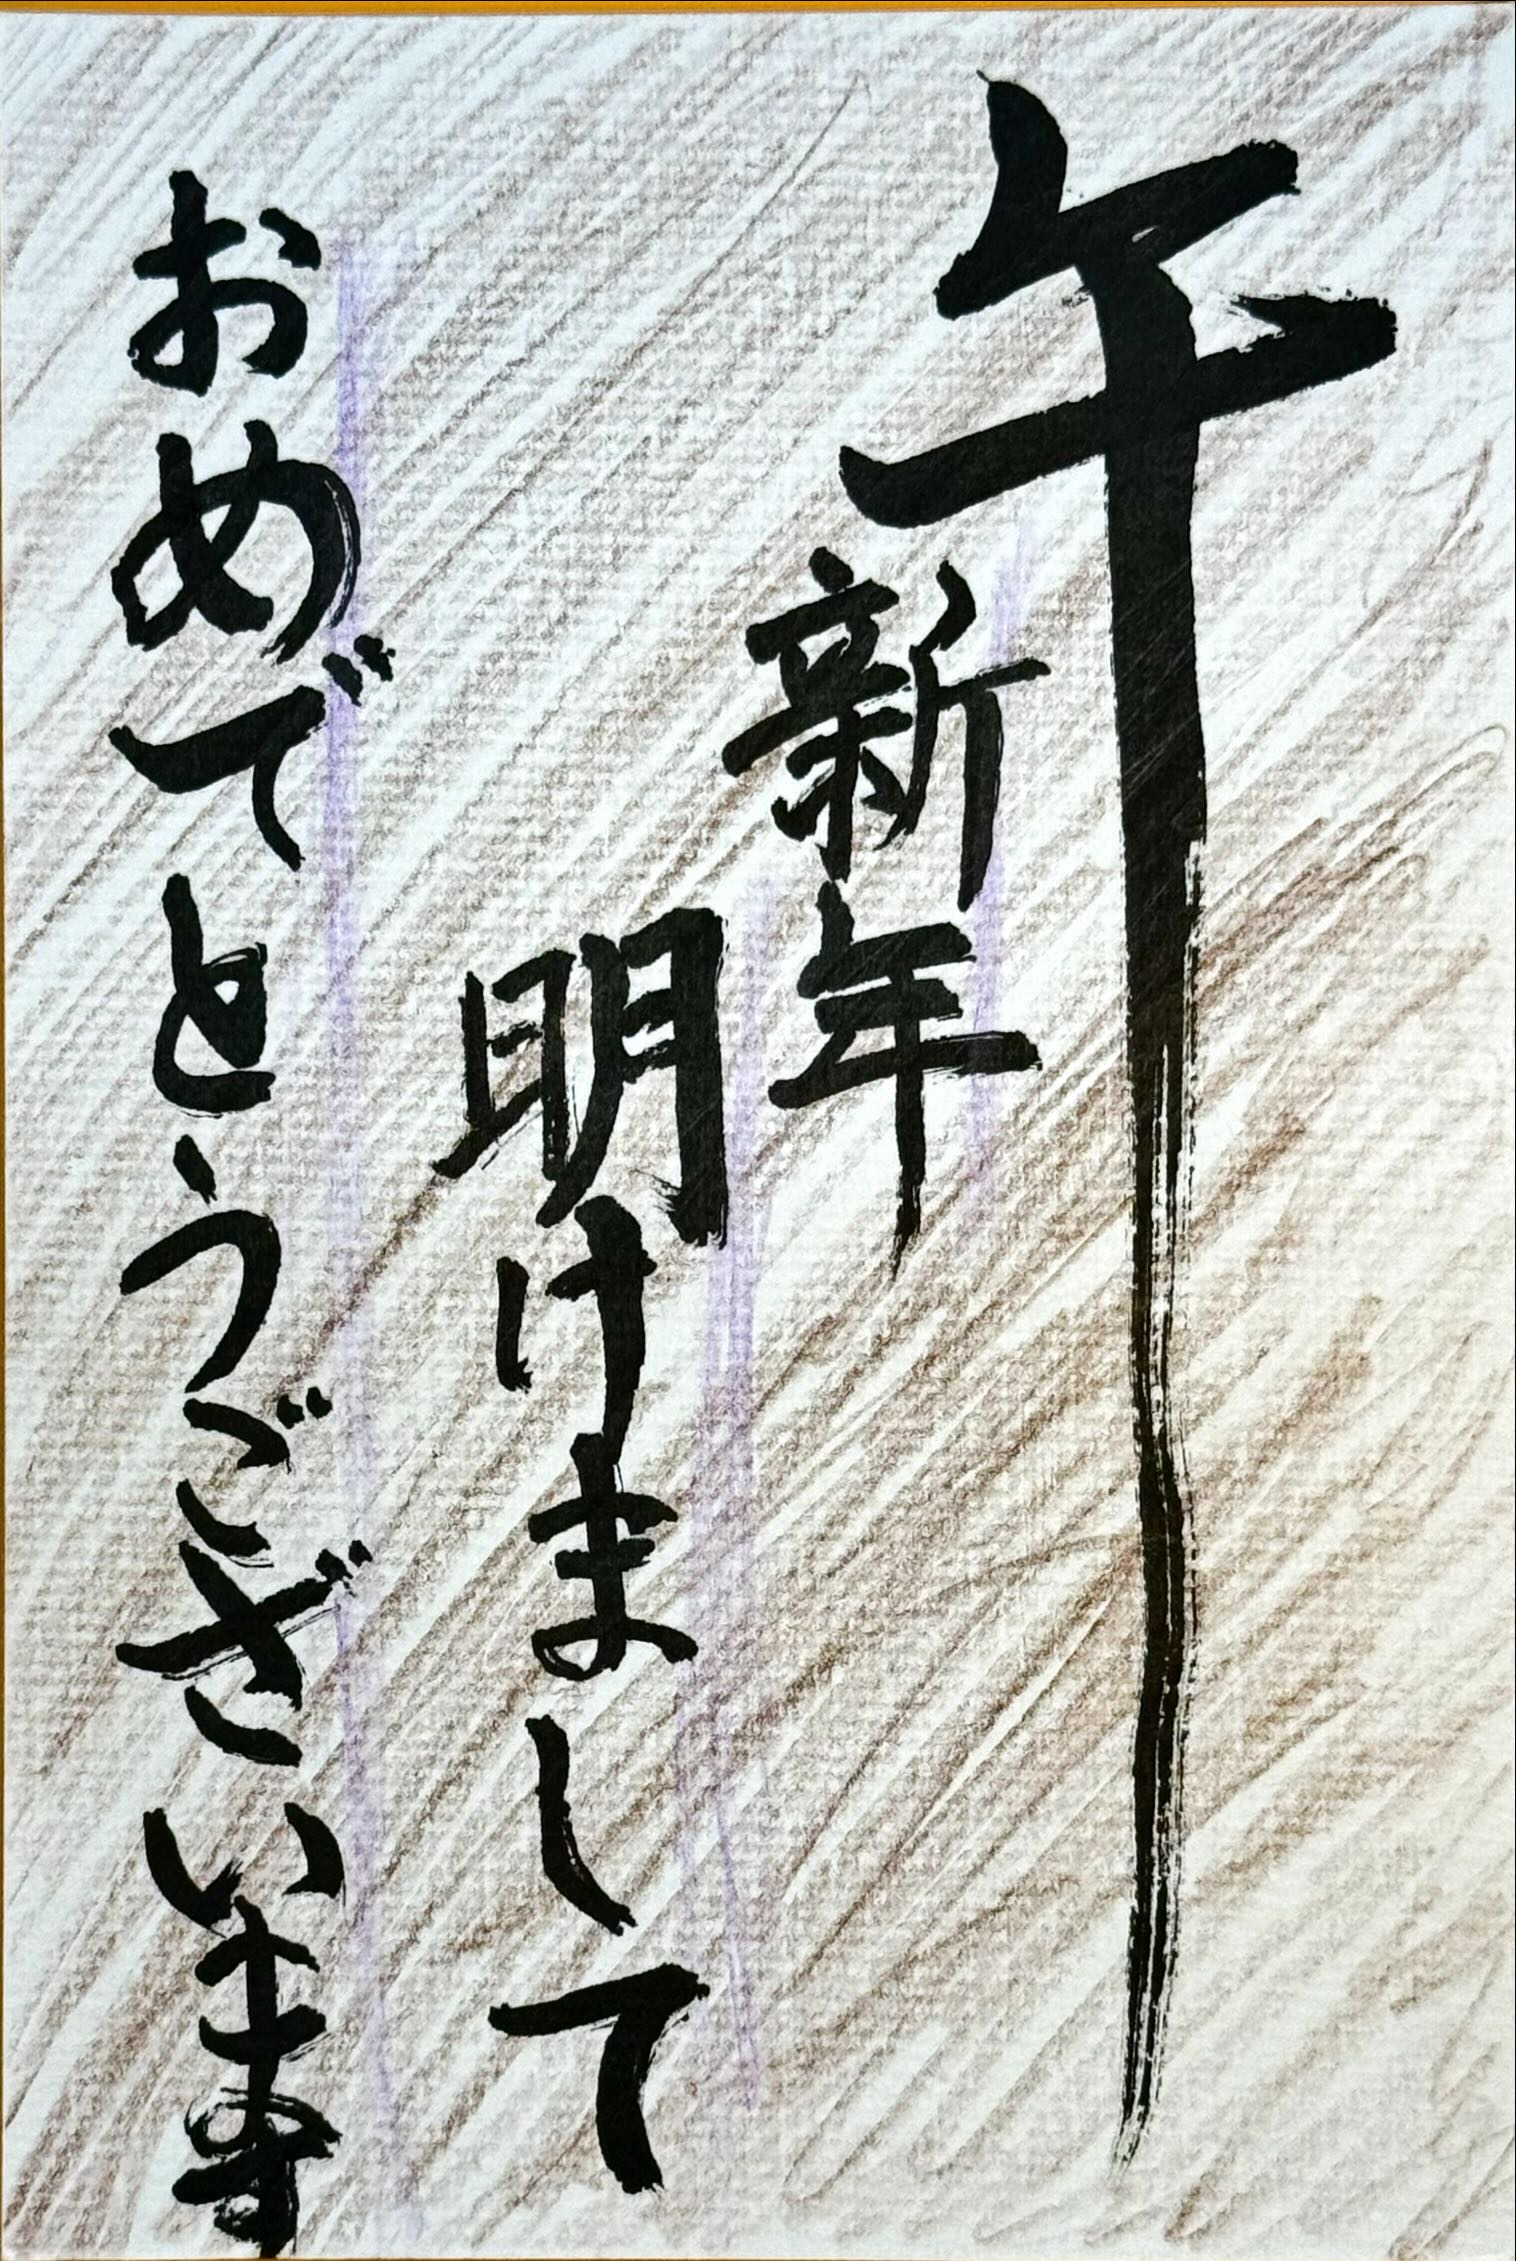 午
新年
明けまして
おめでとうございます